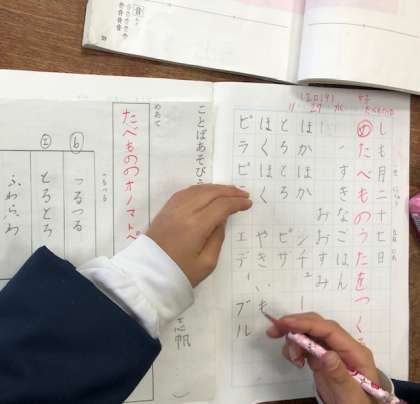 しも月二十七日
めたべもののうたをつく
すきなごはん
ほかほか シチュー
とろとろ ピザ
ほくほく やきいも
ビラビ エディブル
ことばあそびう
めあて
たべもののオノマトペ
つるつる
つるつる
とろとろ
ふわふわ